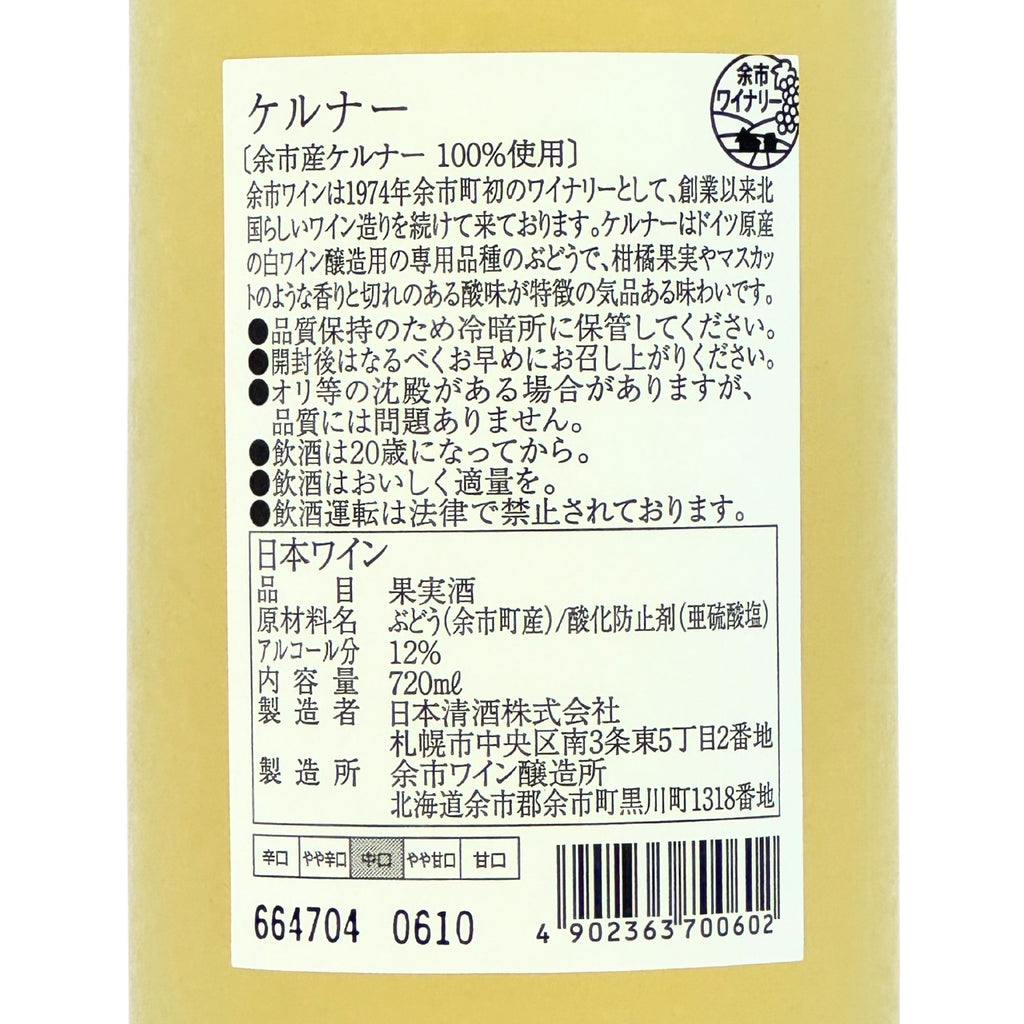 余市
ワイナリー
ケルナー
〔余市産ケルナー 100%使用〕
余市ワインは1974年余市町初のワイナリーとして、創業以来北
国らしいワイン造りを続けて来ております。ケルナーはドイツ原産
の白ワイン醸造用の専用品種のぶどうで、柑橘果実やマスカッ
トのような香りと切れのある酸味が特徴の気品ある味わいです。
●品質保持のため冷暗所に保管してください。
●開封後はなるべくお早めにお召し上がりください。
●オリ等の沈殿がある場合がありますが、
品質には問題ありません。
●飲酒は20歳になってから。
●飲酒はおいしく適量を。
●飲酒運転は法律で禁止されております。
日本ワイン
品目 果実酒
原材料名 ぶどう(余市町産)/酸化防止剤(亜硫酸塩)
アルコール分 12%
内容量 720mℓ
製造者 日本清酒株式会社
札幌市中央区南3条東5丁目2番地
製造所 余市ワイン醸造所
北海道余市郡余市町黒川町1318番地
辛口 やや辛口 中口 やや甘口 甘口
664704 0610
4 902363 700602